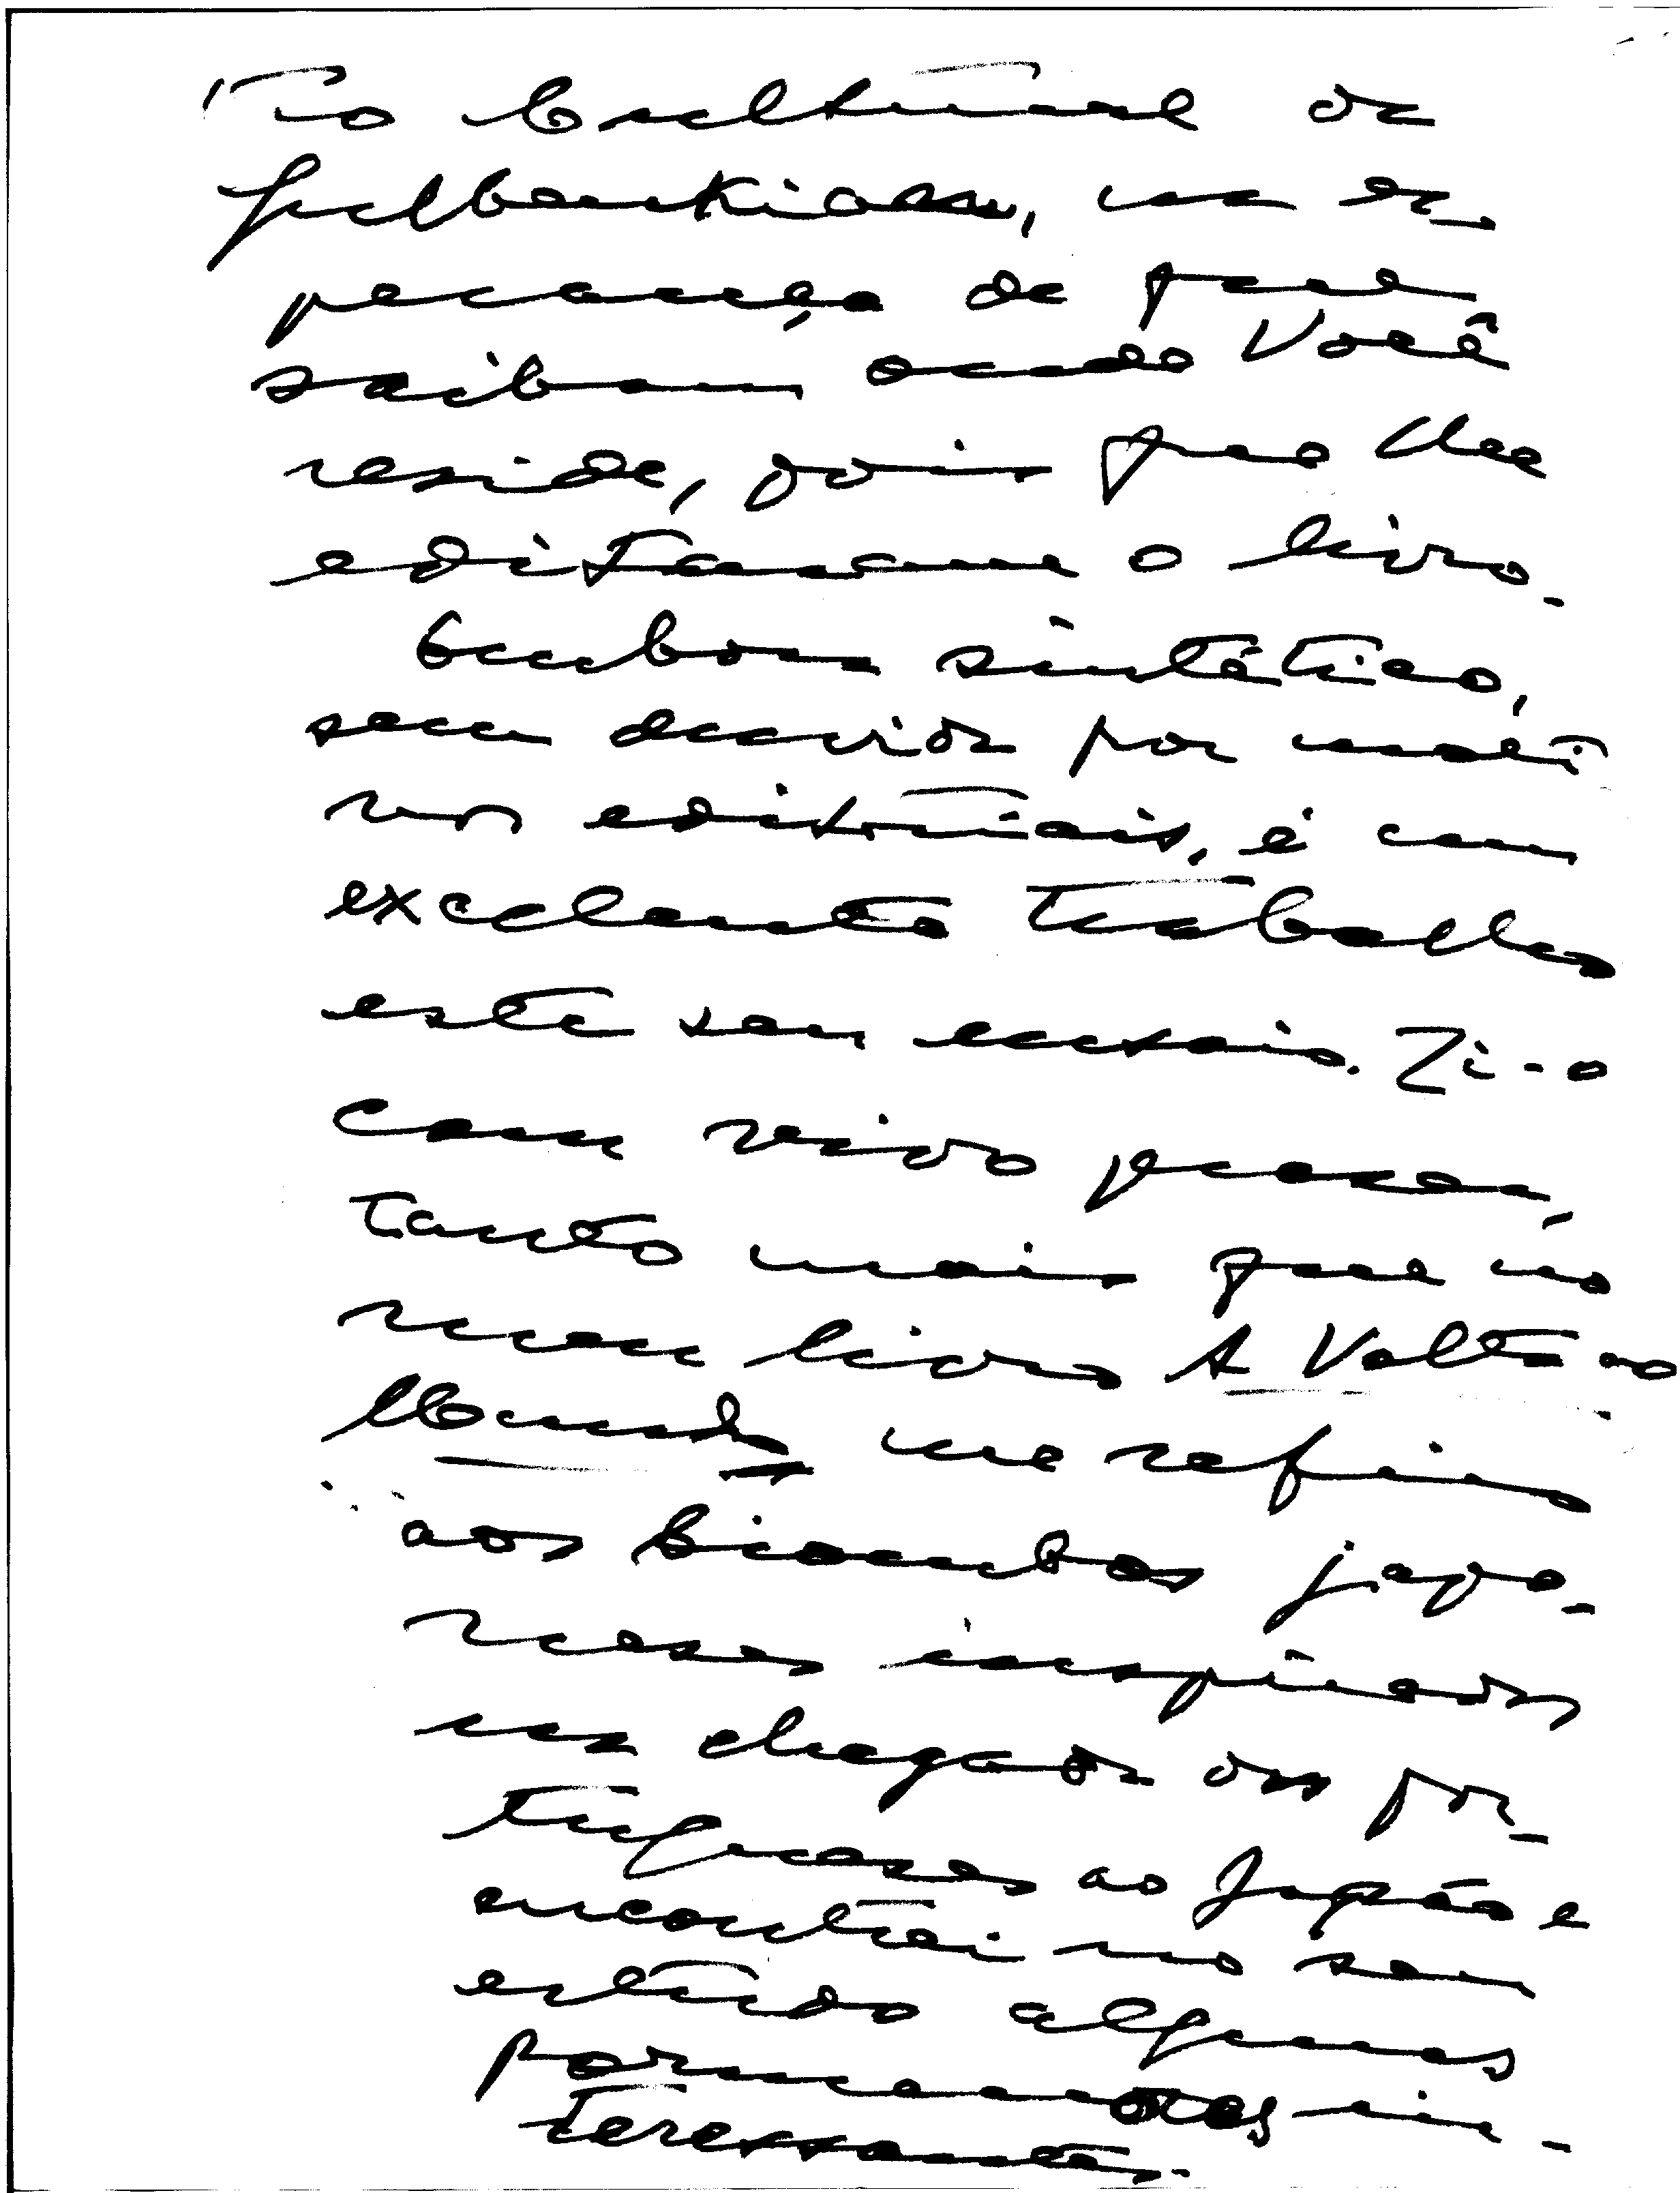 to Cultural da
Gulbenkian, na es-
perança de que
saibam onde Você
reside, pois que lhe
editaram o livro.
Embora sintético,
sem dúvida por moti
vos editoriais, é um
excelente trabalho
este seu ensaio. Li-o
com vivo prazer,
tanto mais que no
meu livro A Volta ao
Mundo, me refiro
aos biombos japo-
neses inspirados
na chegada dos por-
tugueses ao Japão e
encontrei no seu
estudo alguns
pormenores in-
teressantes.